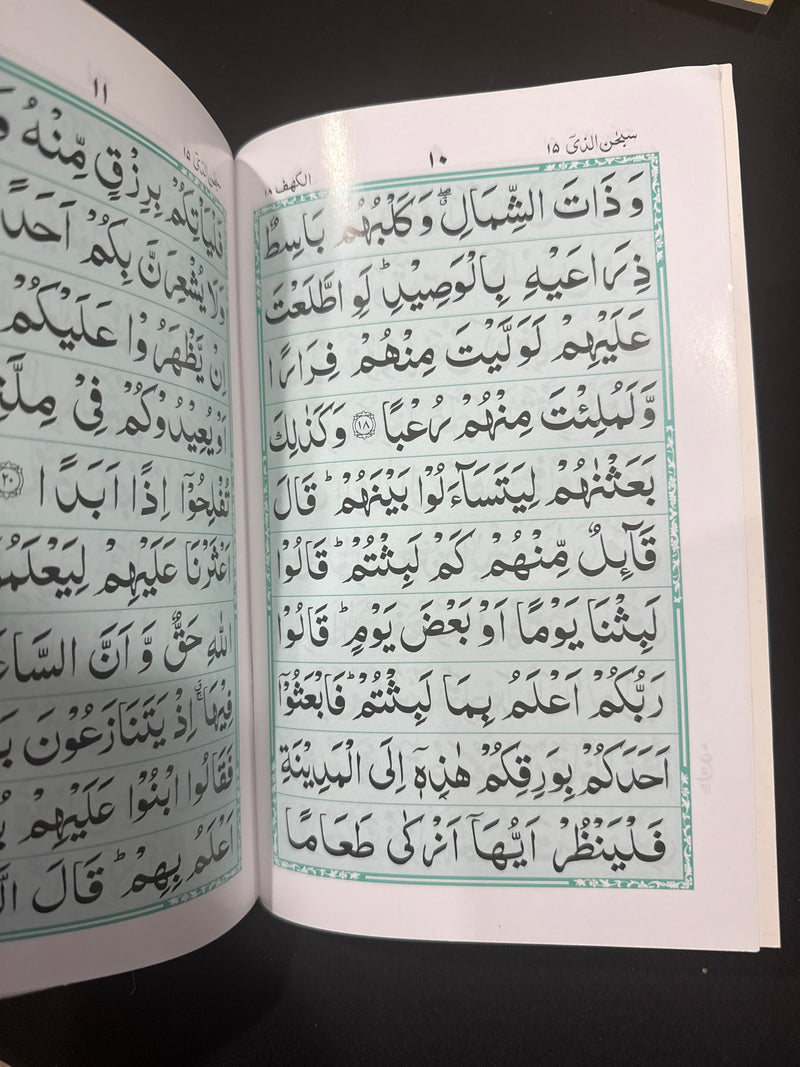 سبحٰن الذی ۱۵
۱۰
الکھف ۱۸
وَذَاتَ الشِّمَالِ ۖ وَكَلْبُهُمْ بَاسِطٌ
ذِرَاعَيْهِ بِالْوَصِيْدِ ؕ لَوِ اطَّلَعْتَ
عَلَيْهِمْ لَوَلَّيْتَ مِنْهُمْ فِرَارًا
وَّلَمُلِئْتَ مِنْهُمْ رُعْبًا ۱۸ وَكَذٰلِكَ
بَعَثْنٰهُمْ لِيَتَسَآءَلُوْا بَيْنَهُمْ ؕ قَالَ
قَآئِلٌ مِّنْهُمْ كَمْ لَبِثْتُمْ ؕ قَالُوْا
لَبِثْنَا يَوْمًا اَوْ بَعْضَ يَوْمٍ ؕ قَالُوْا
رَبُّكُمْ اَعْلَمُ بِمَا لَبِثْتُمْ ؕ فَابْعَثُوْٓا
اَحَدَكُمْ بِوَرِقِكُمْ هٰذِهٖٓ اِلَى الْمَدِيْنَةِ
فَلْيَنْظُرْ اَيُّهَآ اَزْكٰى طَعَامًا
سبحٰن الذی ۱۵
۱۱
فَلْيَاْتِكُمْ بِرِزْقٍ مِّنْهُ
وَلَا يُشْعِرَنَّ بِكُمْ اَحَدًا
اِنْ يَّظْهَرُوْا عَلَيْكُمْ
اَوْ يُعِيْدُوْكُمْ فِيْ
تُفْلِحُوْٓا اِذًا اَبَدًا ۲۰
اَعْثَرْنَا عَلَيْهِمْ
اللّٰهِ حَقٌّ وَّاَنَّ
فِيْهَا ۚ اِذْ يَتَنَازَعُوْنَ
فَقَالُوا ابْنُوْا عَلَيْهِمْ
اَعْلَمُ بِهِمْ ؕ قَالَ